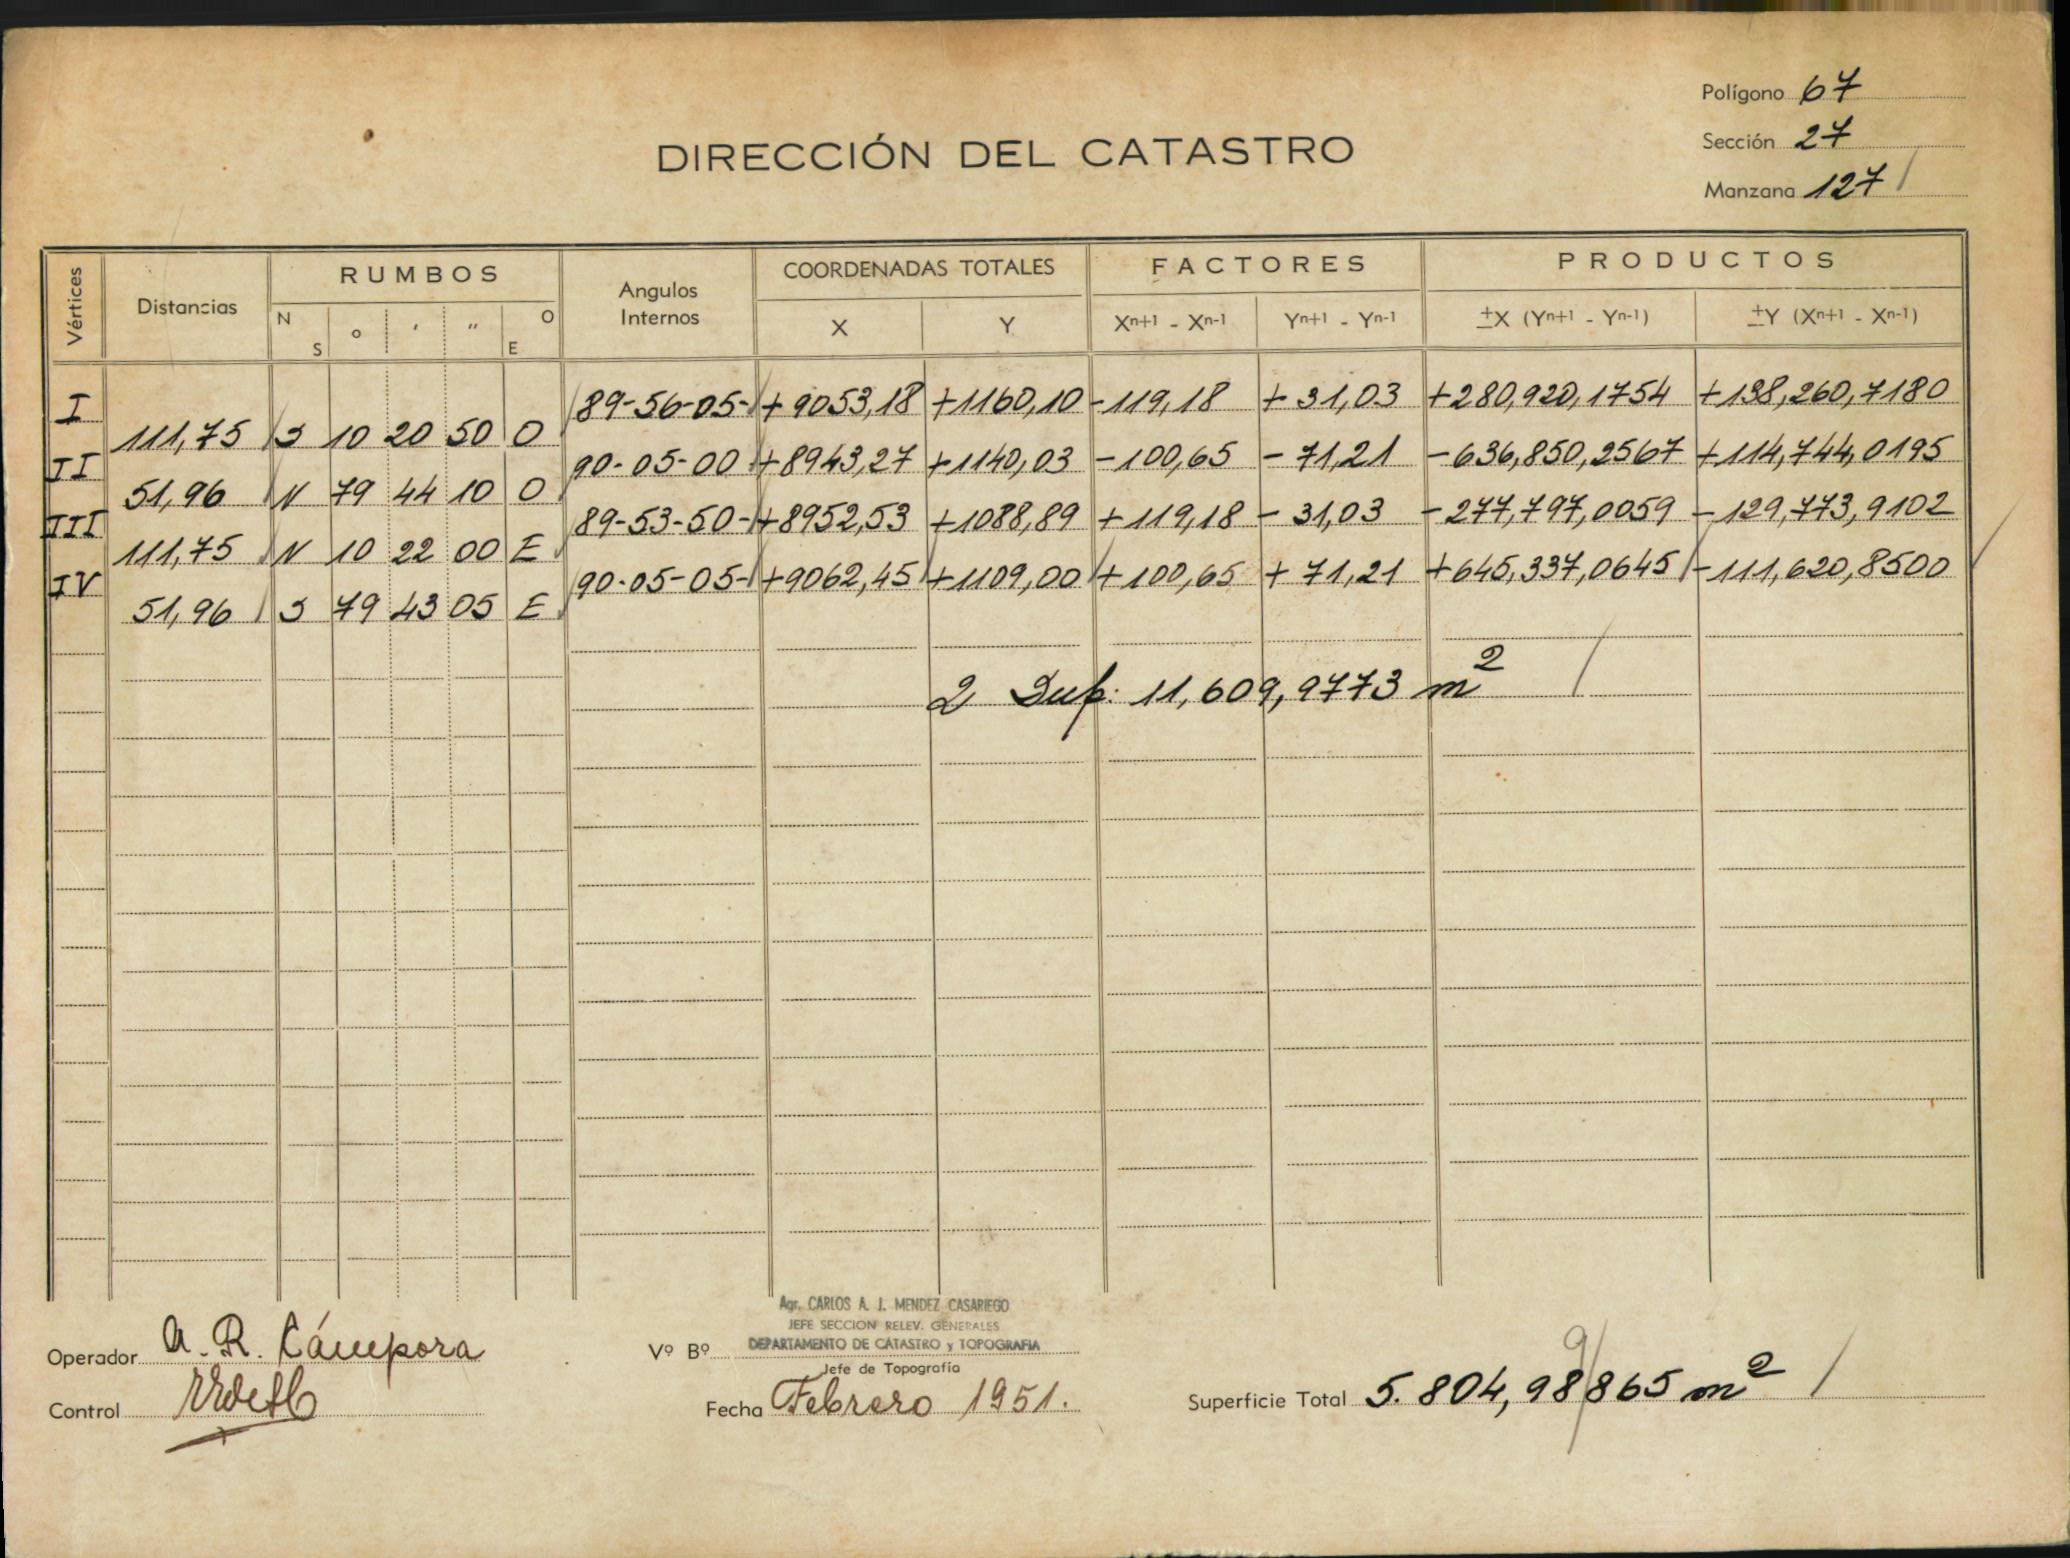 Polígono 67
Sección 27
Manzana 127
DIRECCIÓN DEL CATASTRO
Vértices Distancias RUMBOS Angulos Internos COORDENADAS TOTALES FACTORES PRODUCTOS
N S ° ′ ″ O E X Y Xⁿ⁺¹ - Xⁿ⁻¹ Yⁿ⁺¹ - Yⁿ⁻¹ ±X (Yⁿ⁺¹ - Yⁿ⁻¹) ±Y (Xⁿ⁺¹ - Xⁿ⁻¹)
I 89-56-05- +9053,18 +1160,10 -119,18 + 31,03 +280,920,1754 +138,260,7180
111,75 S 10 20 50 O
II 90-05-00 +8943,27 +1140,03 -100,65 - 71,21 -636,850,2567 +114,744,0195
51,96 N 79 44 10 O
III 89-53-50- +8952,53 +1088,89 +119,18 - 31,03 -277,797,0059 -129,773,9102
111,75 N 10 22 00 E
IV 90-05-05- +9062,45 +1109,00 +100,65 + 71,21 +645,337,0645 -111,620,8500
51,96 S 79 43 05 E
2 Sup: 11,609,9773 m²
Agr. CARLOS A. J. MENDEZ CASARIEGO
JEFE SECCION RELEV. GENERALES
DEPARTAMENTO DE CATASTRO y TOPOGRAFIA
Operador A. R. Cámpora Vº Bº
Jefe de Topografía
Control
Fecha Febrero 1951.
9
Superficie Total 5.804,98865 m²